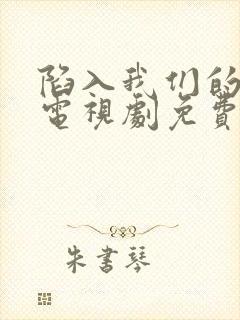 陷入我们的
電視劇免費
朱書琴